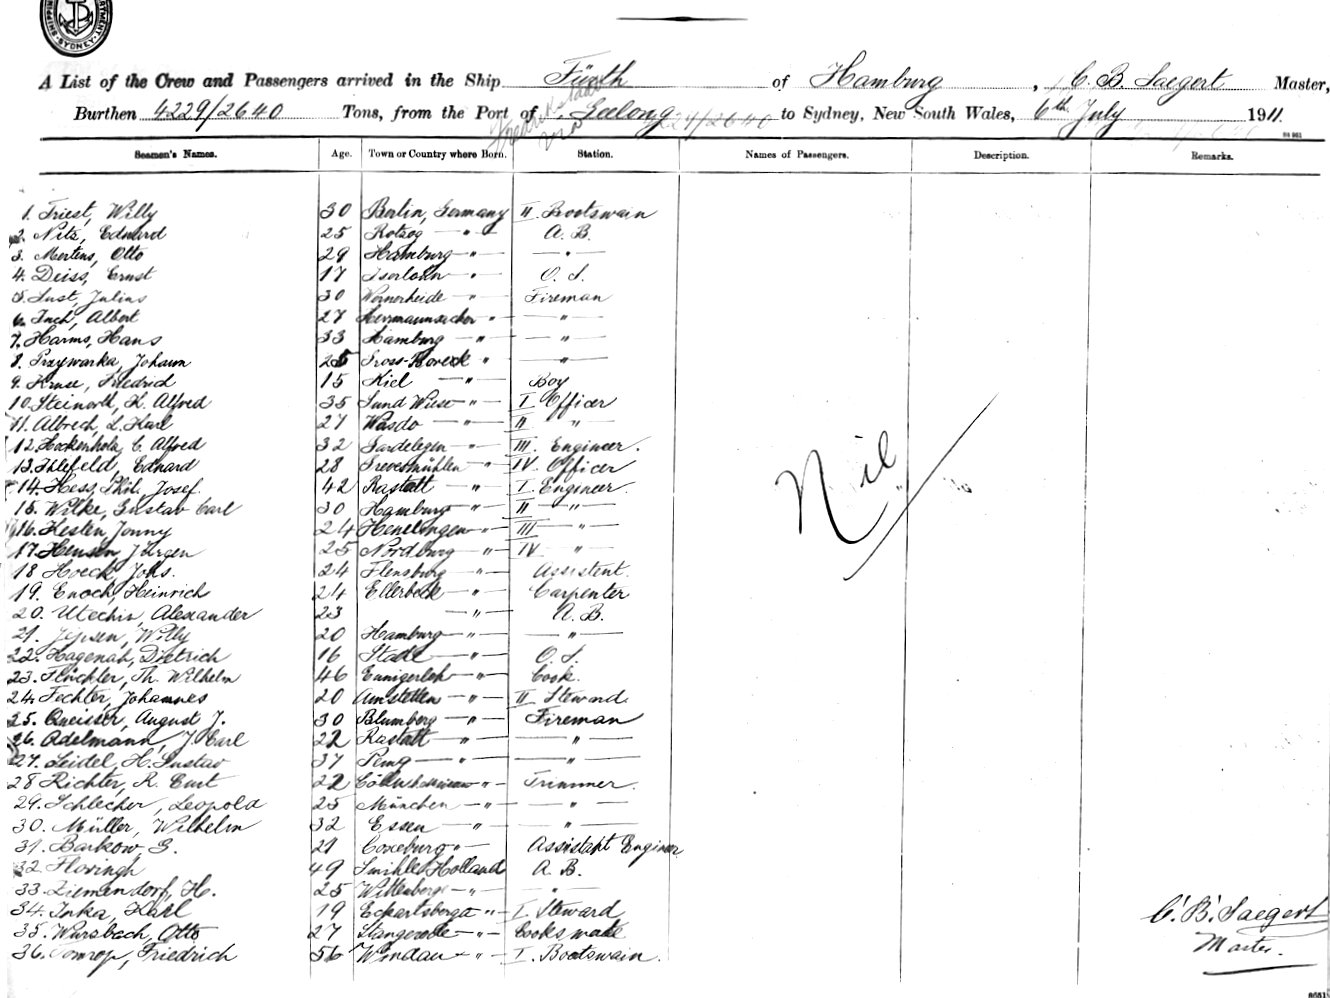 SYDNEY
A List of the Crew and Passengers arrived in the Ship Fürth of Hamburg, C. B. Saegert Master,
Burthen 4229/2640 Tons, from the Port of Geelong to Sydney, New South Wales, 6th July 1911
Seamen's Names. Age. Town or Country where Born. Station. Names of Passengers. Description. Remarks.
1. Triest, Willy 30 Berlin, Germany II. Bootswain
2. Nitz, Eduard 25 Rotzog —"— A. B.
3. Mertens, Otto 29 Hamburg —"— —"—
4. Deiss, Ernst 17 Iserlohn —"— O. S.
5. Lust, Julius 30 Wernerheide —"— Fireman
6. Tuch, Albert 27 —"— —"—
7. Harms, Hans 33 Hamburg —"— —"—
8. Przywarka, Johann 25 —"— —"—
9. Kruse, Friedrich 15 Kiel —"— Boy
10. Steinorth, K. Alfred 35 Sund Wiese —"— I Officer
11. Albrech, L. Karl 27 Wasdo —"— II —"—
12. Hockenholz, C. Alfred 32 Gardelegen —"— III. Engineer.
13. Ihlefeld, Eduard 28 Grevesmühlen —"— IV. Officer
14. Hess, Phil. Josef. 42 Rastatt —"— I Engineer.
15. Wilke, Gustav Carl 30 Hamburg —"— II —"—
16. Kesten, Jonny 24 —"— III —"—
17. Hensen, Jürgen 25 Nordburg —"— IV —"—
18 Hoeck, Johs. 24 Flensburg —"— Assistent.
19. Enoch, Heinrich 24 Ellerbeck —"— Carpenter
20. Utechis, Alexander 23 —"— A. B.
21. Jepsen, Willy 20 Hamburg —"— —"—
22. Hagenah, Dietrich 16 Stade —"— O. S.
23. Flöchler, Th. Wilhelm 46 Ennigerloh —"— Cook.
24. Fechter, Johannes 20 Amstetten —"— II Steward.
25. Queisser, August J. 30 Blumberg —"— Fireman
26. Adelmann, J. Carl 22 Rastatt —"— —"—
27. Seidel, H. Gustav 37 —"— —"—
28 Richter, R. Curt 22 Cölln —"— Trimmer.
29. Schlecher, Leopold 25 München —"— —"—
30. Müller, Wilhelm 32 Essen —"— —"—
31. Barkow G. 21 Coxeburg —"— Assistant Engineer
32 Flovingh 49 Holland A. B.
33. Ziemendorf, H. 25 Wittenberge —"— —"—
34. Inka, Karl 19 Eckartsberga —"— I. Steward
35. Wursbach, Otto 27 Stangerode —"— Cooks mate
36. Friedrich 56 Windau —"— I. Bootswain.
Nil
C. B. Saegert
Master.